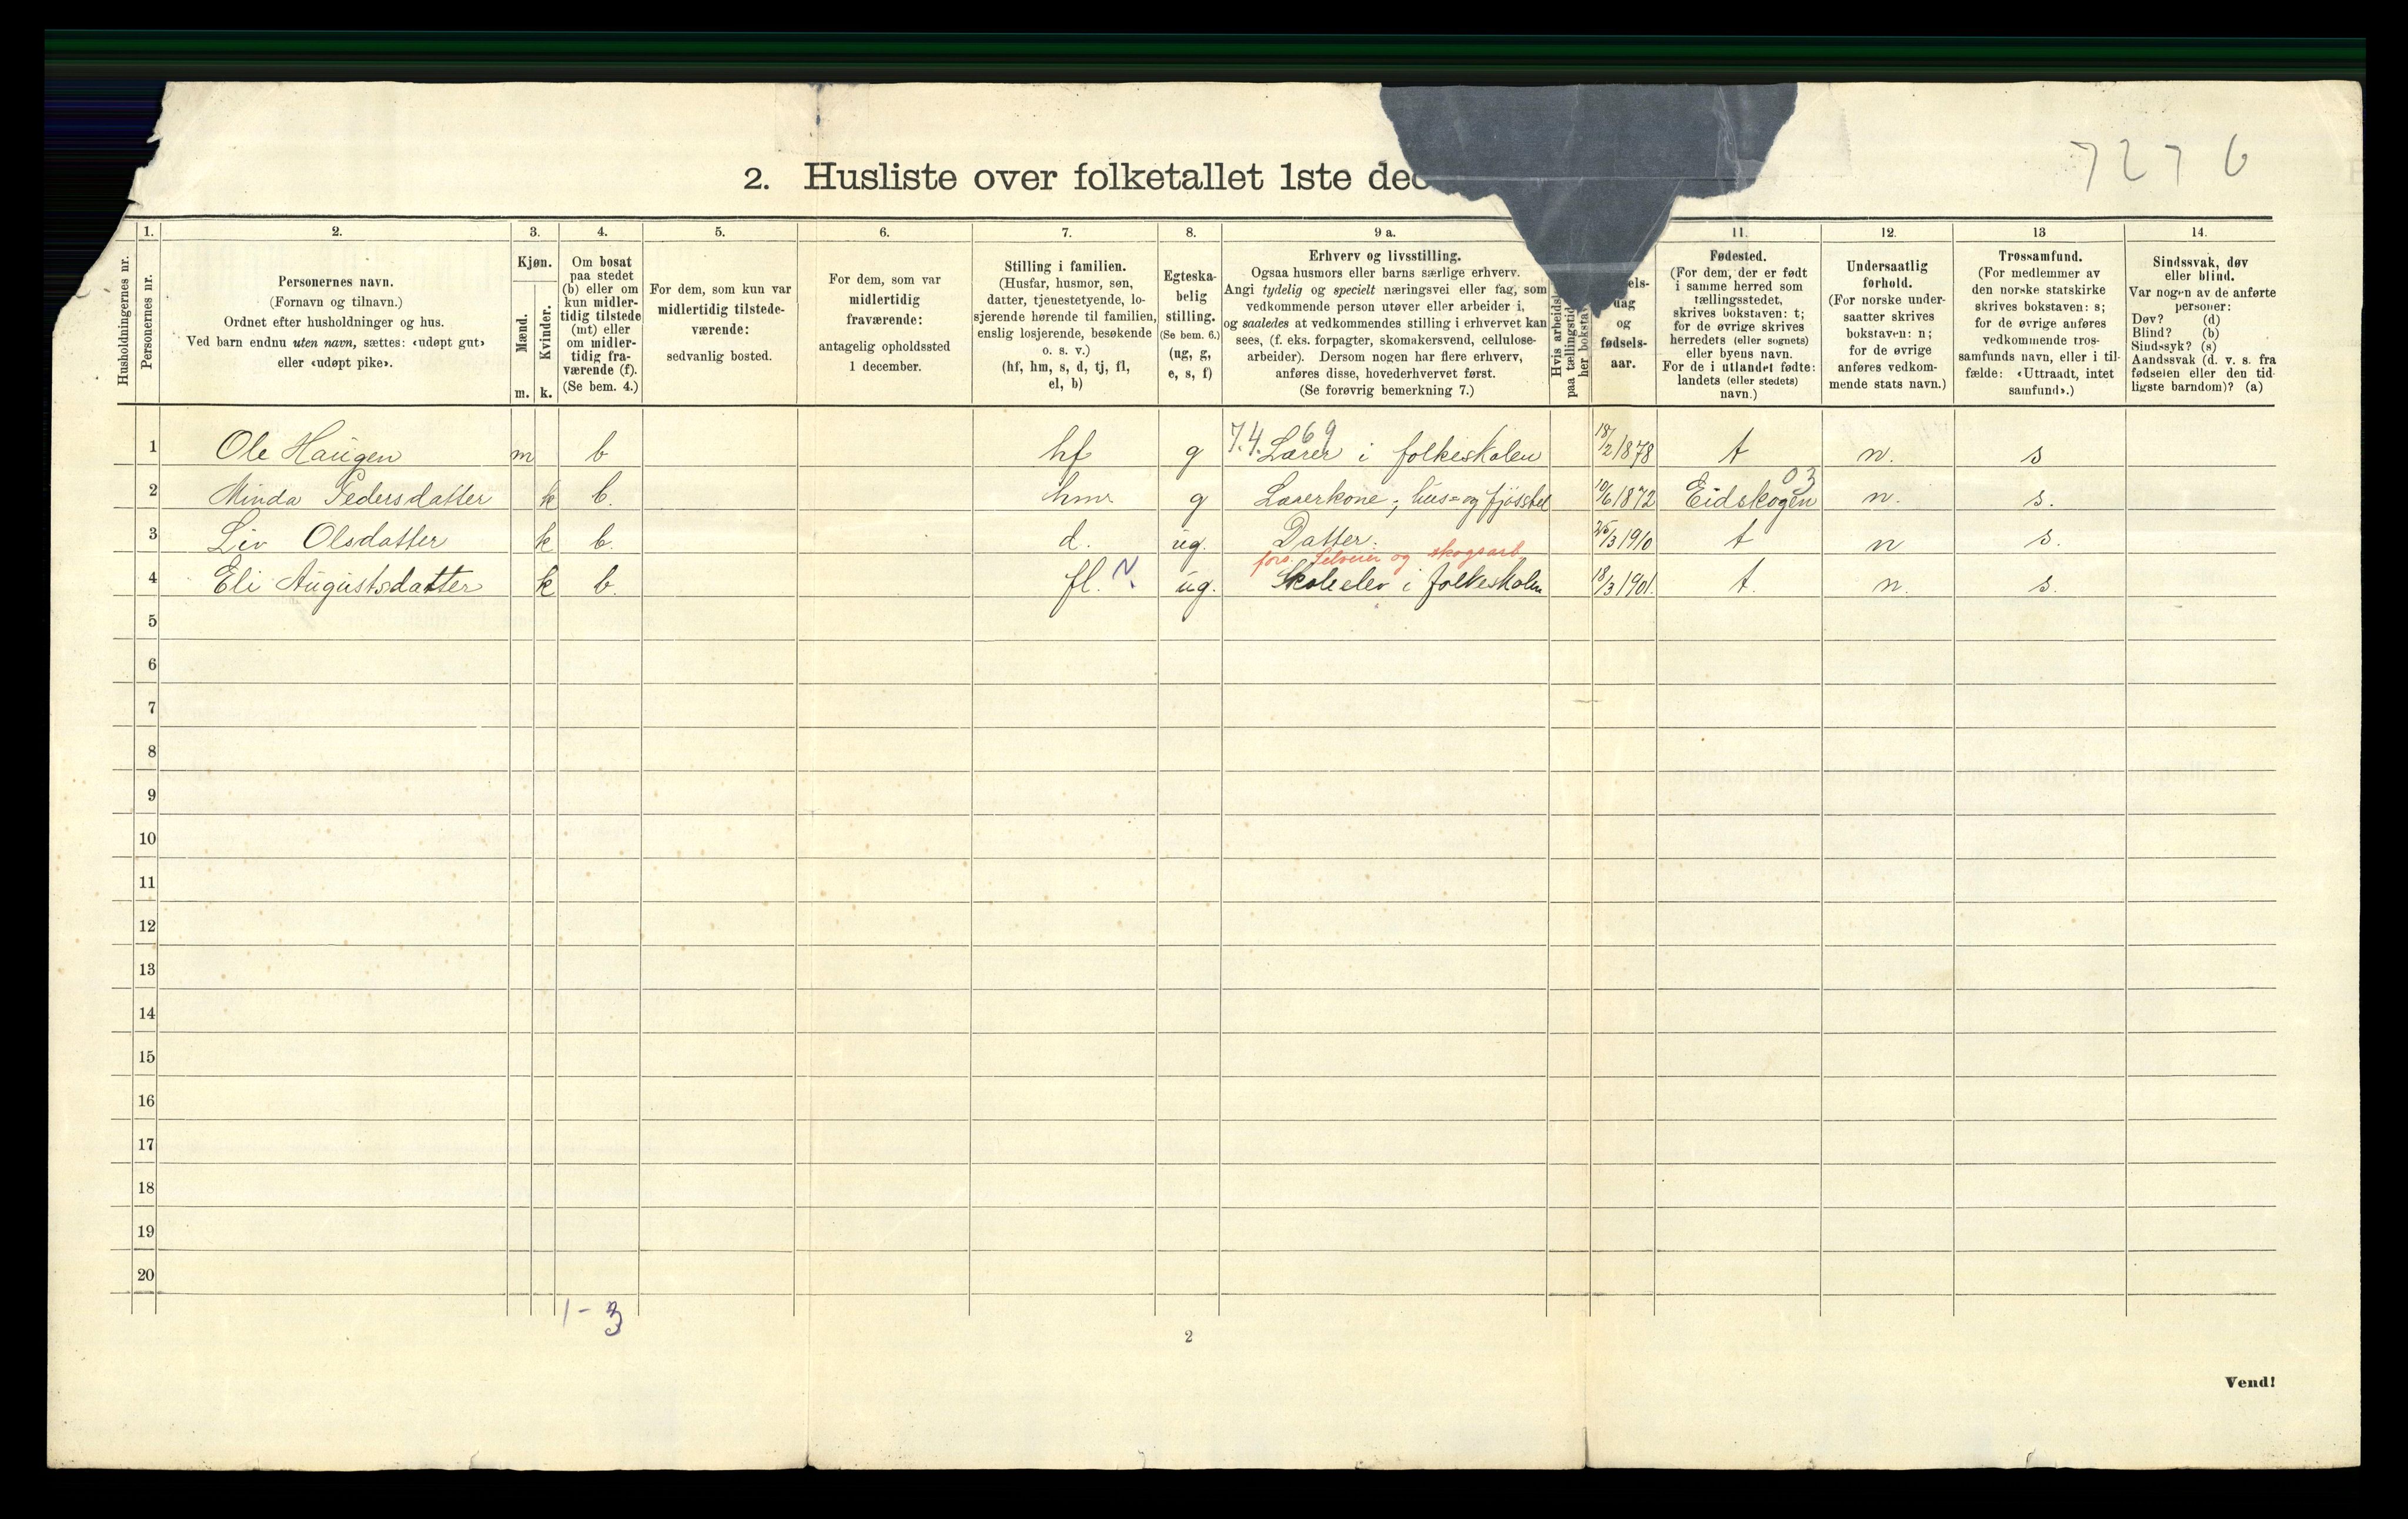 7276
2. Husliste over folketallet 1ste dec
1. 2. 3. 4. 5. 6. 7. 8. 9 a. 11. 12. 13 14.
Husholdningernes nr.
Personernes nr.
Personernes navn.
(Fornavn og tilnavn.)
Ordnet efter husholdninger og hus.
Ved barn endnu uten navn, sættes: «udøpt gut»
eller «udøpt pike».
Kjøn.
Mænd.
Kvinder.
m. k.
Om bosat
paa stedet
(b) eller om
kun midler-
tidig tilstede
(mt) eller
om midler-
tidig fra-
værende (f).
(Se bem. 4.)
For dem, som kun var
midlertidig tilstede-
værende:
sedvanlig bosted.
For dem, som var
midlertidig
fraværende:
antagelig opholdssted
1 december.
Stilling i familien.
(Husfar, husmor, søn,
datter, tjenestetyende, lo-
sjerende hørende til familien,
enslig losjerende, besøkende
o. s. v.)
(hf, hm, s, d, tj, fl,
el, b)
Egteska-
belig
stilling.
(Se bem. 6.)
(ug, g,
e, s, f)
Erhverv og livsstilling.
Ogsaa husmors eller barns særlige erhverv.
Angi tydelig og specielt næringsvei eller fag, som
vedkommende person utøver eller arbeider i,
og saaledes at vedkommendes stilling i erhvervet kan
sees, (f. eks. forpagter, skomakersvend, cellulose-
arbeider). Dersom nogen har flere erhverv,
anføres disse, hovederhvervet først.
(Se forøvrig bemerkning 7.)
Hvis arbeids
paa tællingstid
her bokstav
els-
dag
og
fødsels-
aar.
Fødested.
(For dem, der er født
i samme herred som
tællingsstedet,
skrives bokstaven: t;
for de øvrige skrives
herredets (eller sognets)
eller byens navn.
For de i utlandet fødte:
landets (eller stedets)
navn.)
Undersaatlig
forhold.
(For norske under-
saatter skrives
bokstaven: n;
for de øvrige
anføres vedkom-
mende stats navn.)
Trossamfund.
(For medlemmer av
den norske statskirke
skrives bokstaven: s;
for de øvrige anføres
vedkommende tros-
samfunds navn, eller i til-
fælde: «Uttraadt, intet
samfund».)
Sindssvak, døv
eller blind.
Var nogen av de anførte
personer:
Døv? (d)
Blind? (b)
Sindssyk? (s)
Aandssvak (d. v. s. fra
fødselen eller den tid-
ligste barndom)? (a)
7.4. 69
1 Ole Haugen m b hf g Lærer i folkeskolen 18/2 1878 t n. s
03
2 Minda Pedersdatter k b. hm g Lærerkone; hus= og fjösstel 10/6 1872 Eidskogen n. s.
3 Liv Olsdatter k b. d. ug. Datter. 25/3 1910 t n s.
fors. Selveier og skogsarb
4 Eli Augustsdatter k b. fl. N. ug. Skoleelev i folkeskolen 18/3 1901. t. n. s.
5
6
7
8
9
10
11
12
13
14
15
16
17
18
19
20
1 - 3
2
Vend!